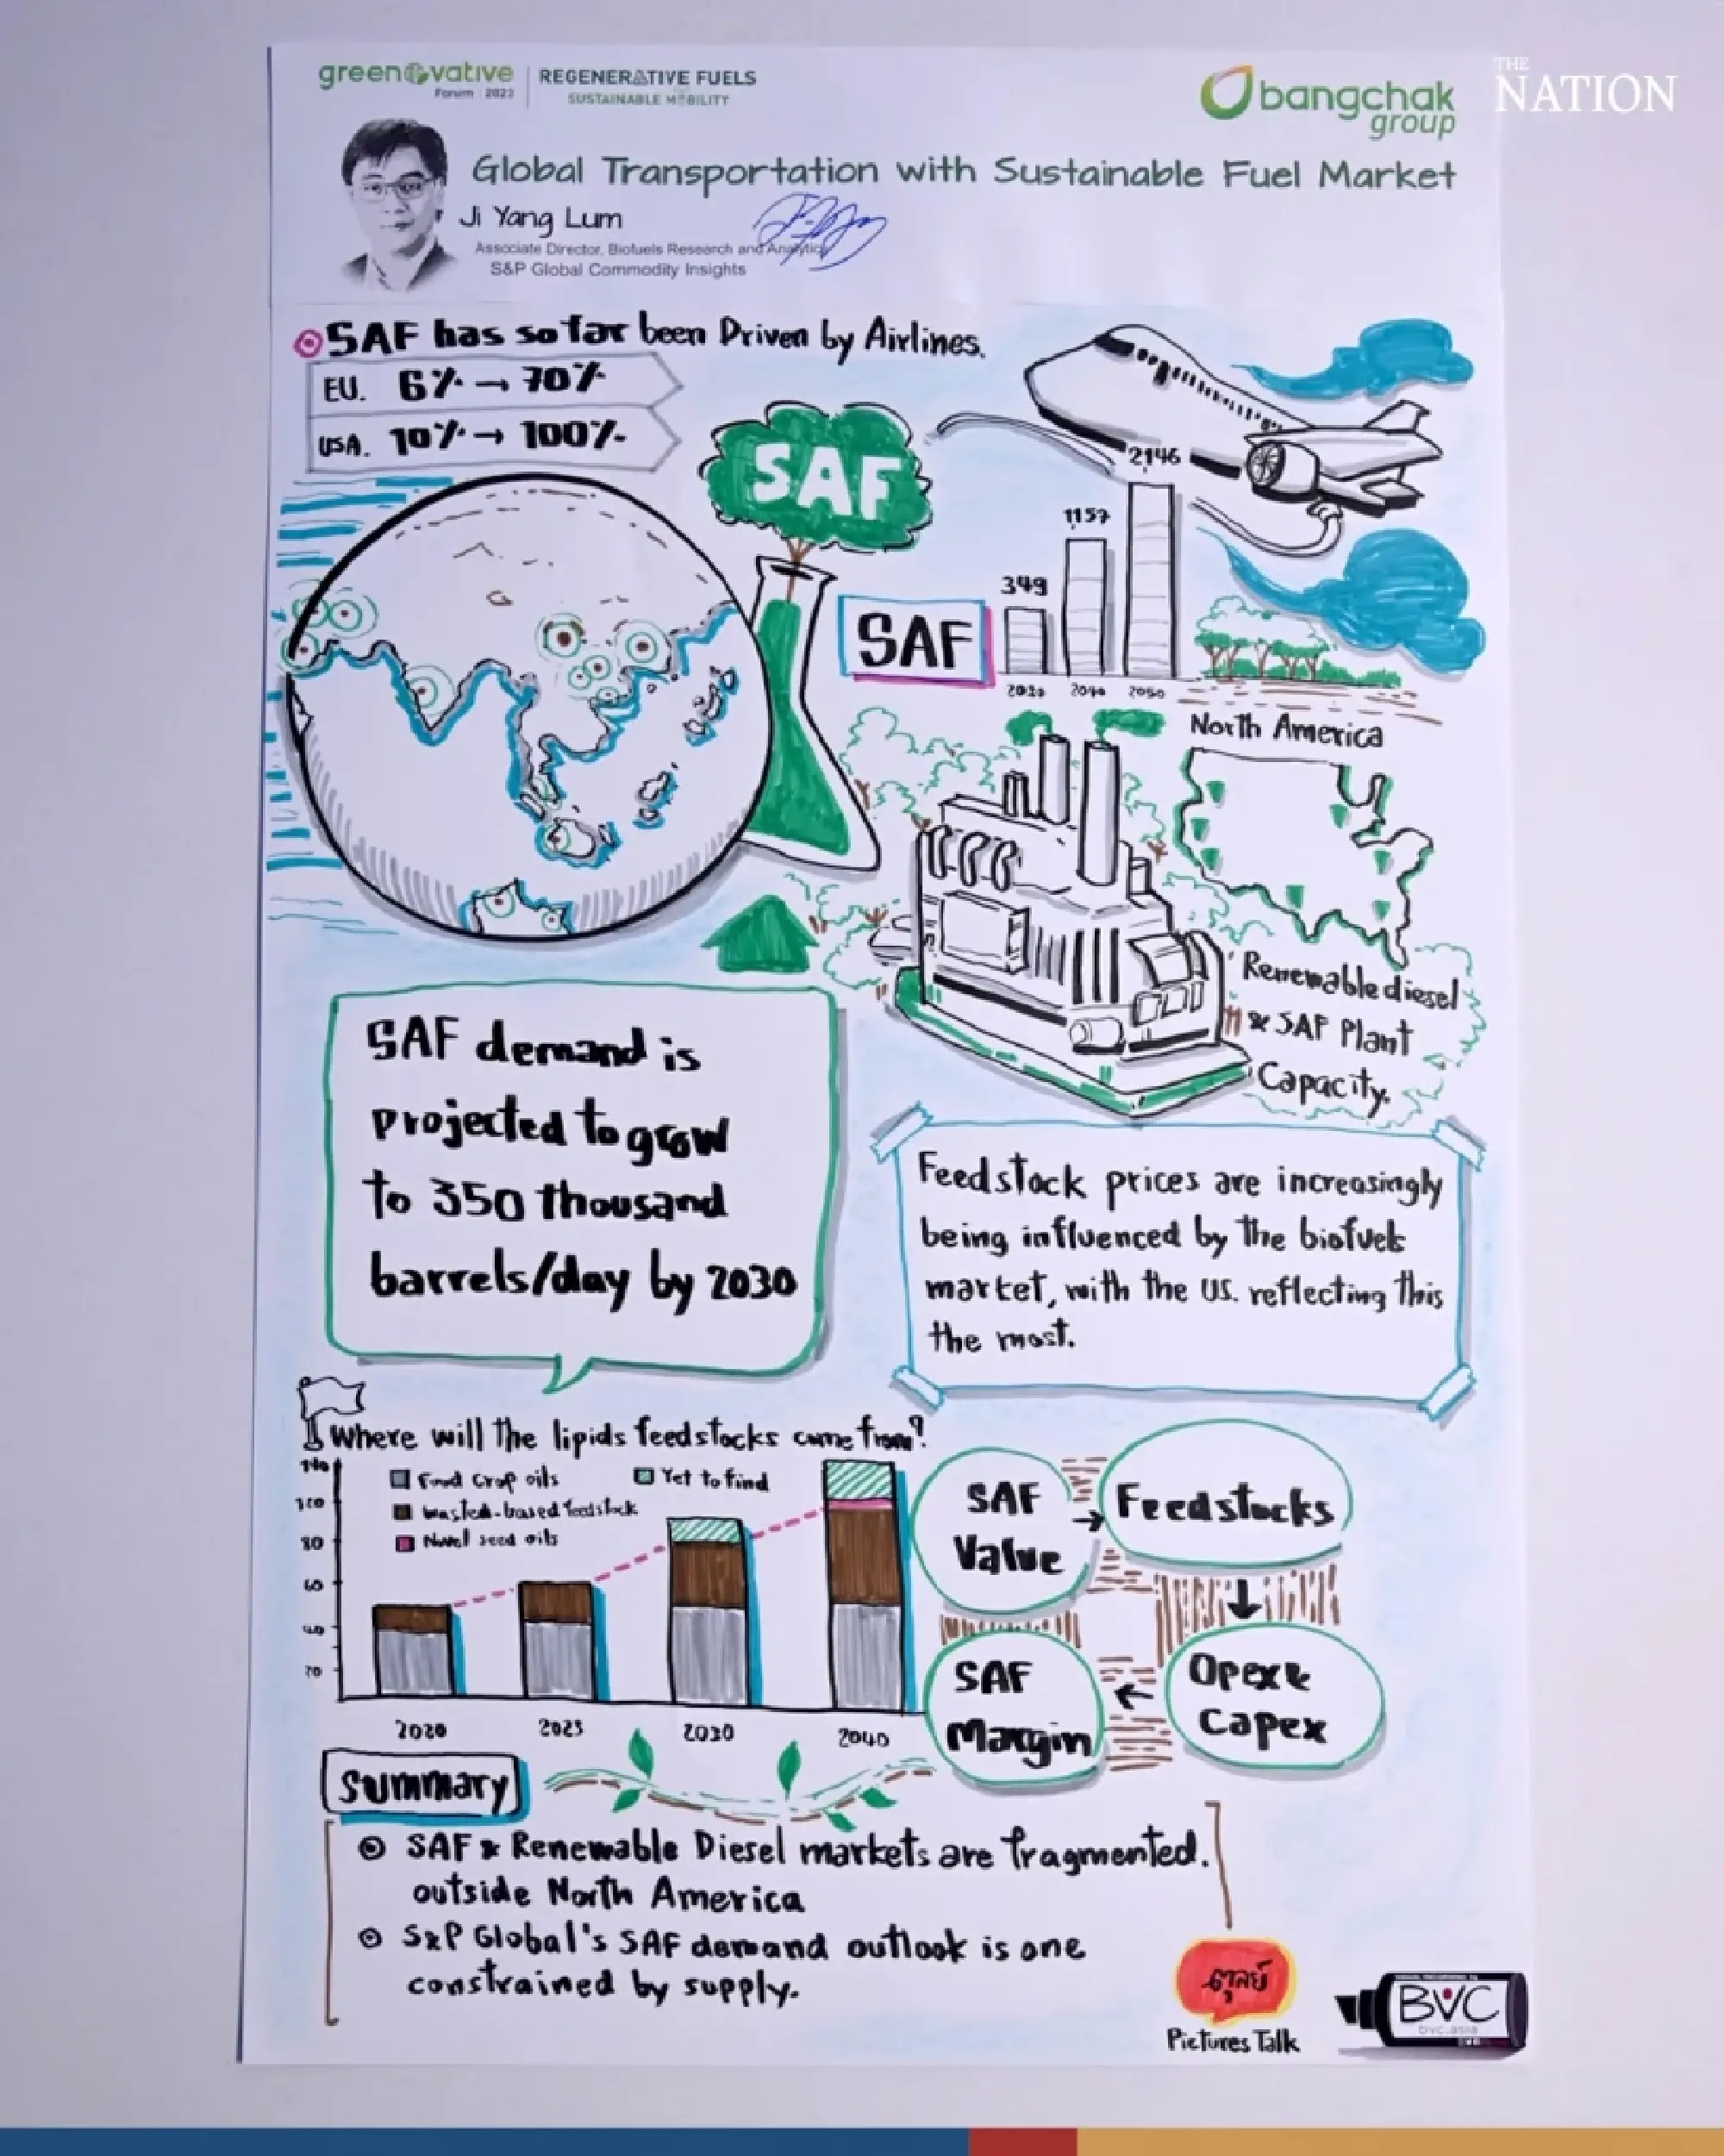 greenovative
Forum 2023
REGENERATIVE FUELS
SUSTAINABLE MOBILITY
bangchak
group
THE
NATION
Global Transportation with Sustainable Fuel Market
Ji Yang Lum
Associate Director, Biofuels Research and Analytics
S&P Global Commodity Insights
SAF has so far been Driven by Airlines.
EU. 6% → 70%
USA. 10% → 100%
SAF
SAF
349
1157
2146
2030 2040 2050
North America
Renewable diesel
& SAF Plant
Capacity.
SAF demand is
projected to grow
to 350 thousand
barrels/day by 2030
Feedstock prices are increasingly
being influenced by the biofuels
market, with the US. reflecting this
the most.
Where will the lipids feedstocks come from?
Food crop oils
Yet to find
Wasted-based feedstock
Novel seed oils
80
60
40
20
2020 2025 2030 2040
SAF
Value
→
Feedstocks
↓
Opex &
Capex
←
SAF
Margin
Summary
SAF & Renewable Diesel markets are fragmented.
outside North America
S&P Global's SAF demand outlook is one
constrained by supply.
Pictures Talk
BVC
bvc.asia